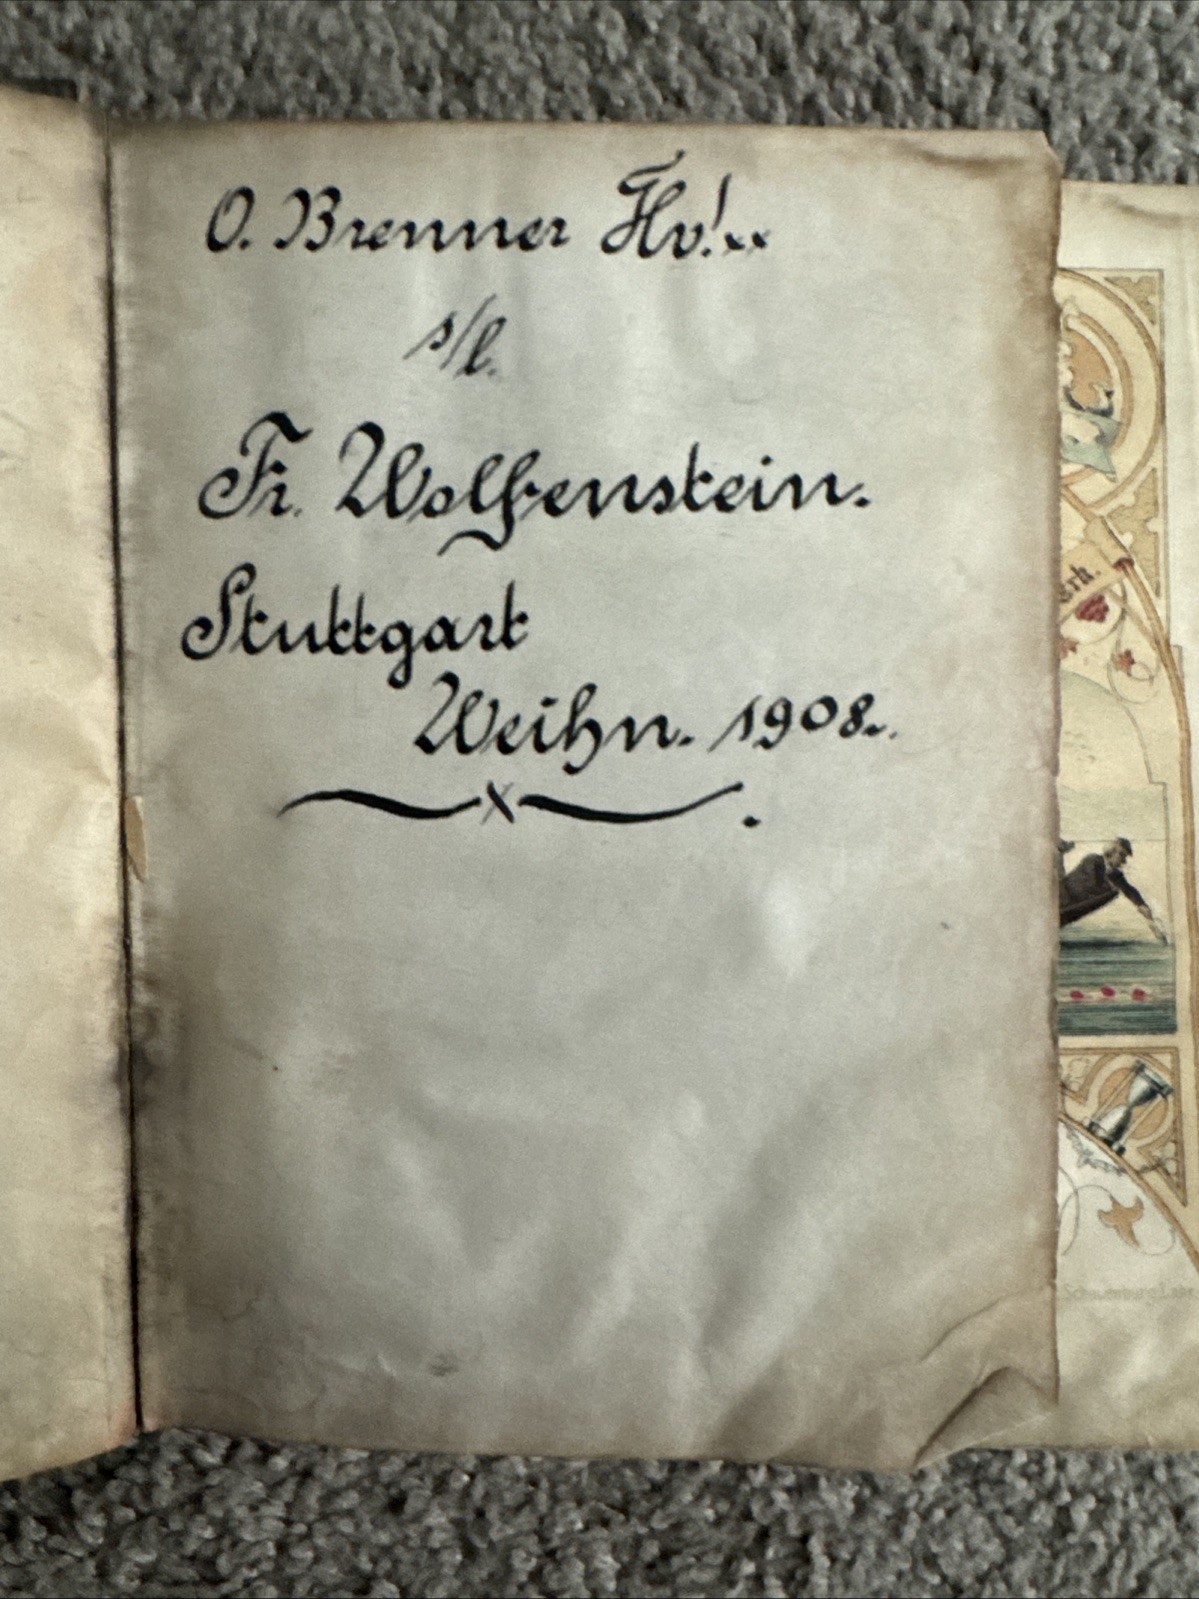 O. Brenner Hv! xx
s/l.
Fr. Wolfenstein.
Stuttgart
Weihn. 1908.
x
erk.
Schauenburg Lahr